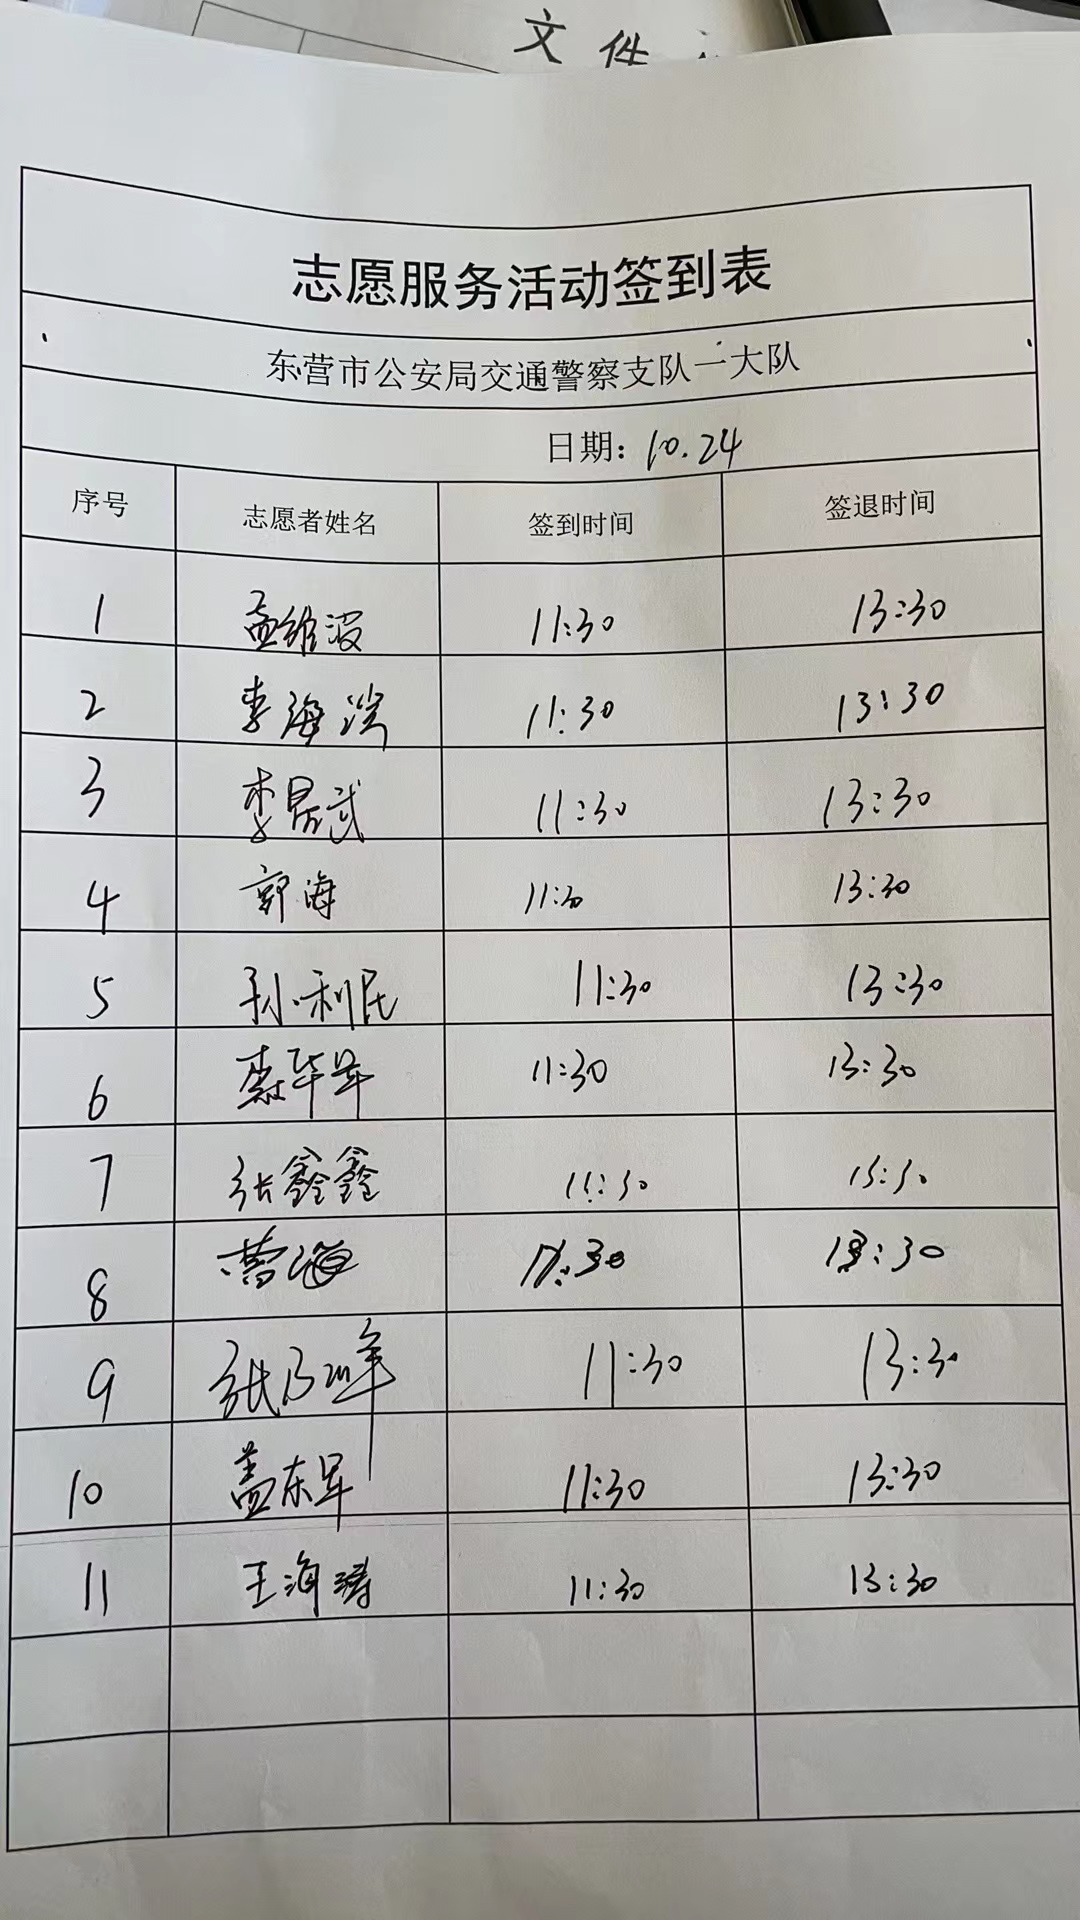 文件
志愿服务活动签到表
东营市公安局交通警察支队一大队
日期：10.24
序号 志愿者姓名 签到时间 签退时间
1 孟维波 11:30 13:30
2 李海滨 11:30 13:30
3 李晨武 11:30 13:30
4 郭海 11:30 13:30
5 孙利民 11:30 13:30
6 11:30 13:30
7 张鑫鑫 11:30 13:30
8 11:30 13:30
9 11:30 13:30
10 盖东军 11:30 13:30
11 王海涛 11:30 13:30